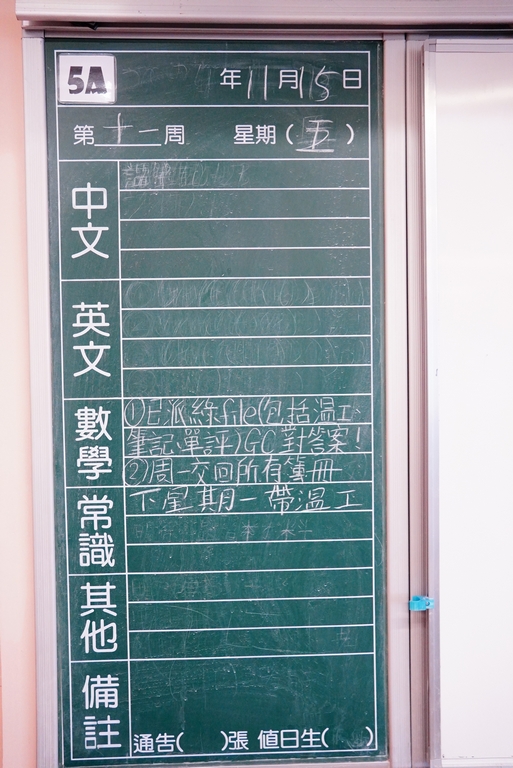 5A 年11月15日
第十一周 星期(五)
中文
英文
數學
①已派綠file(包括溫工、
筆記、單評)GC對答案!
②周一交回所有簿冊
常識
下星期一帶溫工
其他
備註
通告( )張 值日生( )